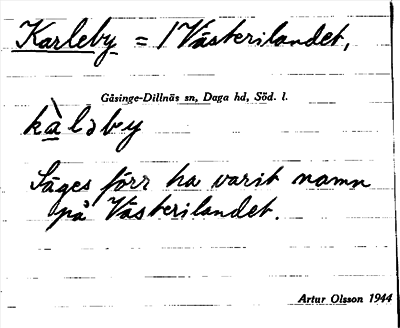 Karleby = /Västerilandet,
Gåsinge-Dillnäs sn, Daga hd, Söd. l.
kàləby
Säges förr ha varit namn
på Västerilandet.
Artur Olsson 1944